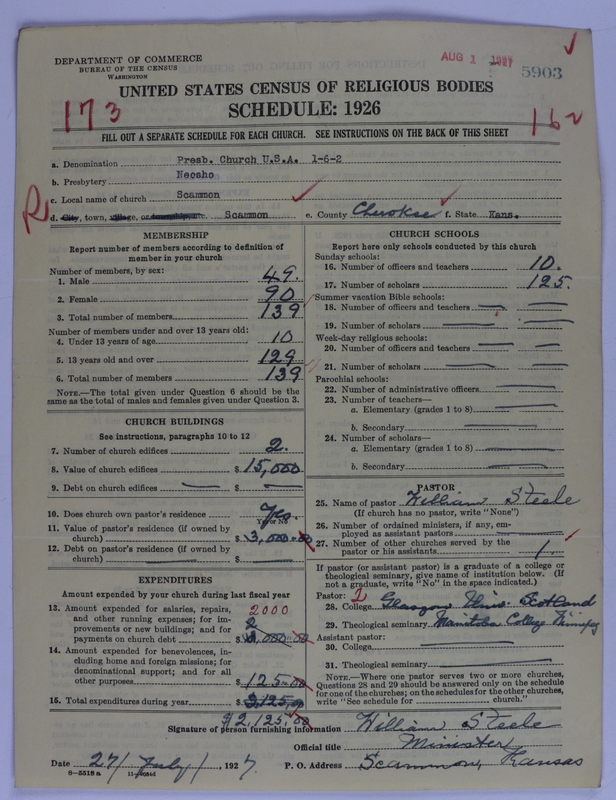 DEPARTMENT OF COMMERCE
BUREAU OF THE CENSUS
WASHINGTON
AUG 1 1927
5903
UNITED STATES CENSUS OF RELIGIOUS BODIES
SCHEDULE: 1926
173
162
FILL OUT A SEPARATE SCHEDULE FOR EACH CHURCH. SEE INSTRUCTIONS ON THE BACK OF THIS SHEET
a. Denomination Presb. Church U.S.A. 1-6-2
b. Presbytery Neosho
c. Local name of church Scammon
R
d. City, town, village, or township, etc. Scammon e. County Cherokee f. State Kans.
MEMBERSHIP
Report number of members according to definition of member in your church
Number of members, by sex:
1. Male 49.
2. Female 90
3. Total number of members 139
Number of members under and over 13 years old:
4. Under 13 years of age 10
5. 13 years old and over 129
6. Total number of members 139
NOTE.—The total given under Question 6 should be the same as the total of males and females given under Question 3.
CHURCH BUILDINGS
See instructions, paragraphs 10 to 12
7. Number of church edifices 2.
8. Value of church edifices $ 15,000
9. Debt on church edifices $
10. Does church own pastor's residence Yes.
Yes or No
11. Value of pastor's residence (if owned by church) $ 3,000.00
12. Debt on pastor's residence (if owned by church) $
EXPENDITURES
Amount expended by your church during last fiscal year
13. Amount expended for salaries, repairs, and other running expenses; for improvements or new buildings; and for payments on church debt 2000 $ 2,000.00
14. Amount expended for benevolences, including home and foreign missions; for denominational support; and for all other purposes $ 125.00
15. Total expenditures during year $ 3,125.00
$2,125.00
CHURCH SCHOOLS
Report here only schools conducted by this church
Sunday schools:
16. Number of officers and teachers 10.
17. Number of scholars 125.
Summer vacation Bible schools:
18. Number of officers and teachers
19. Number of scholars
Week-day religious schools:
20. Number of officers and teachers
21. Number of scholars
Parochial schools:
22. Number of administrative officers
23. Number of teachers—
a. Elementary (grades 1 to 8)
b. Secondary
24. Number of scholars—
a. Elementary (grades 1 to 8)
b. Secondary
PASTOR
25. Name of pastor William Steele
(If church has no pastor, write "None")
26. Number of ordained ministers, if any, employed as assistant pastors
27. Number of other churches served by the pastor or his assistants 1.
If pastor (or assistant pastor) is a graduate of a college or theological seminary, give name of institution below. (If not a graduate, write "No" in the space indicated.)
Pastor:
28. College Glasgow Univ. Scotland
29. Theological seminary Manitoba College Winnipeg
Assistant pastor:
30. College
31. Theological seminary
NOTE.—Where one pastor serves two or more churches, Questions 28 and 29 should be answered only on the schedule for one of the churches; on the schedules for the other churches, write "See schedule for church."
Signature of person furnishing information William Steele
Official title Minister
Date 27/July/, 1927 P. O. Address Scammon, Kansas
8—5518 a